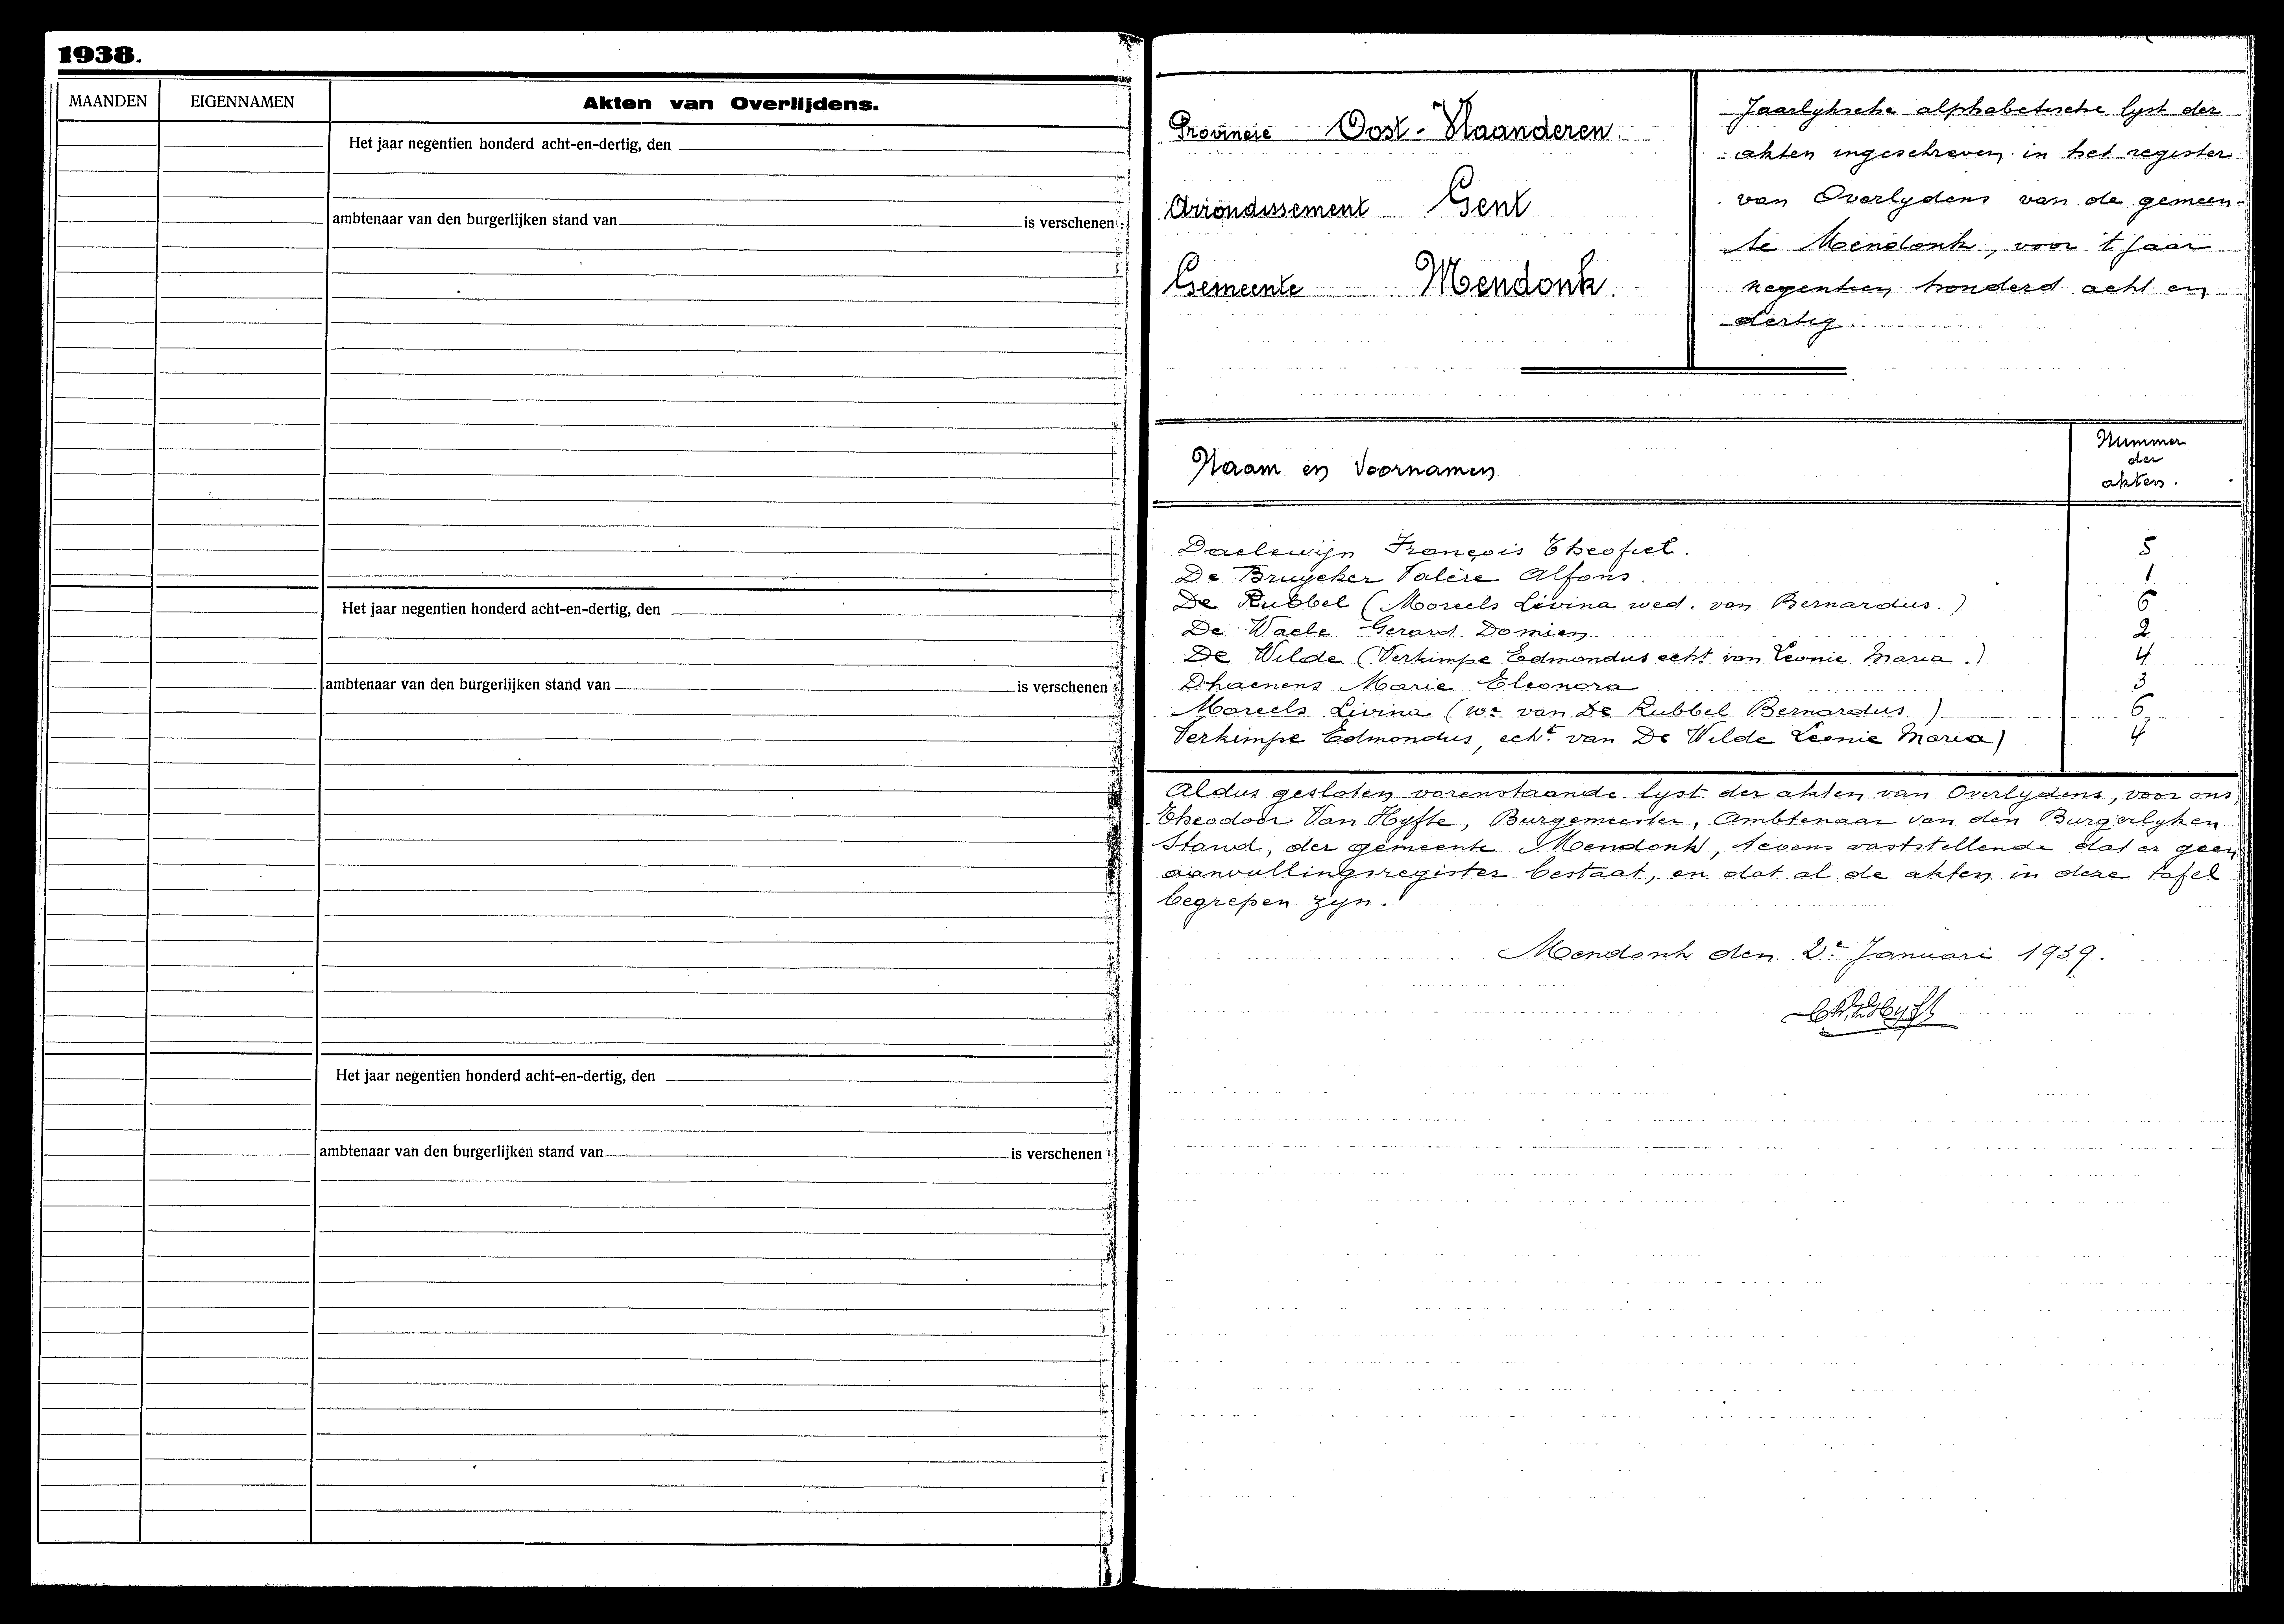 1938.
MAANDEN EIGENNAMEN Akten van Overlijdens.
Het jaar negentien honderd acht-en-dertig, den
ambtenaar van den burgerlijken stand van is verschenen :
Het jaar negentien honderd acht-en-dertig, den
ambtenaar van den burgerlijken stand van is verschenen :
Het jaar negentien honderd acht-en-dertig, den
ambtenaar van den burgerlijken stand van is verschenen :
Provincie Oost-Vlaanderen.
Arrondissement Gent
Gemeente Mendonk.
Jaarlyksche alphabetische lyst der
akten ingeschreven in het register
van Overlydens van de gemeen-
te Mendonk, voor 't jaar
negentien honderd acht en
dertig.
Naam en Voornamen
Nummer
der
akten.
Daelewijn François Theofiel. 5
De Bruycker Valère Alfons. 1
De Rubbel (Moreels Livina wed. van Bernardus.) 6
De Waele Gerard Domien 2
De Wilde (Verkimpe Edmondus echt van Leonie Maria.) 4
Dhaenens Marie Eleonora 3
Moreels Livina (we van De Rubbel Bernardus) 6
Verkimpe Edmondus, echt van De Wilde Leonie Maria) 4
Aldus gesloten vorenstaande lyst der akten van Overlydens, voor ons,
Theodoor Van Hyfte, Burgemeester, Ambtenaar van den Burgerlyken
Stand, der gemeente Mendonk, tevens vaststellende dat er geen
aanvullingsregister bestaat, en dat al de akten in deze tafel
begrepen zyn.
Mendonk den 2e Januari 1939.